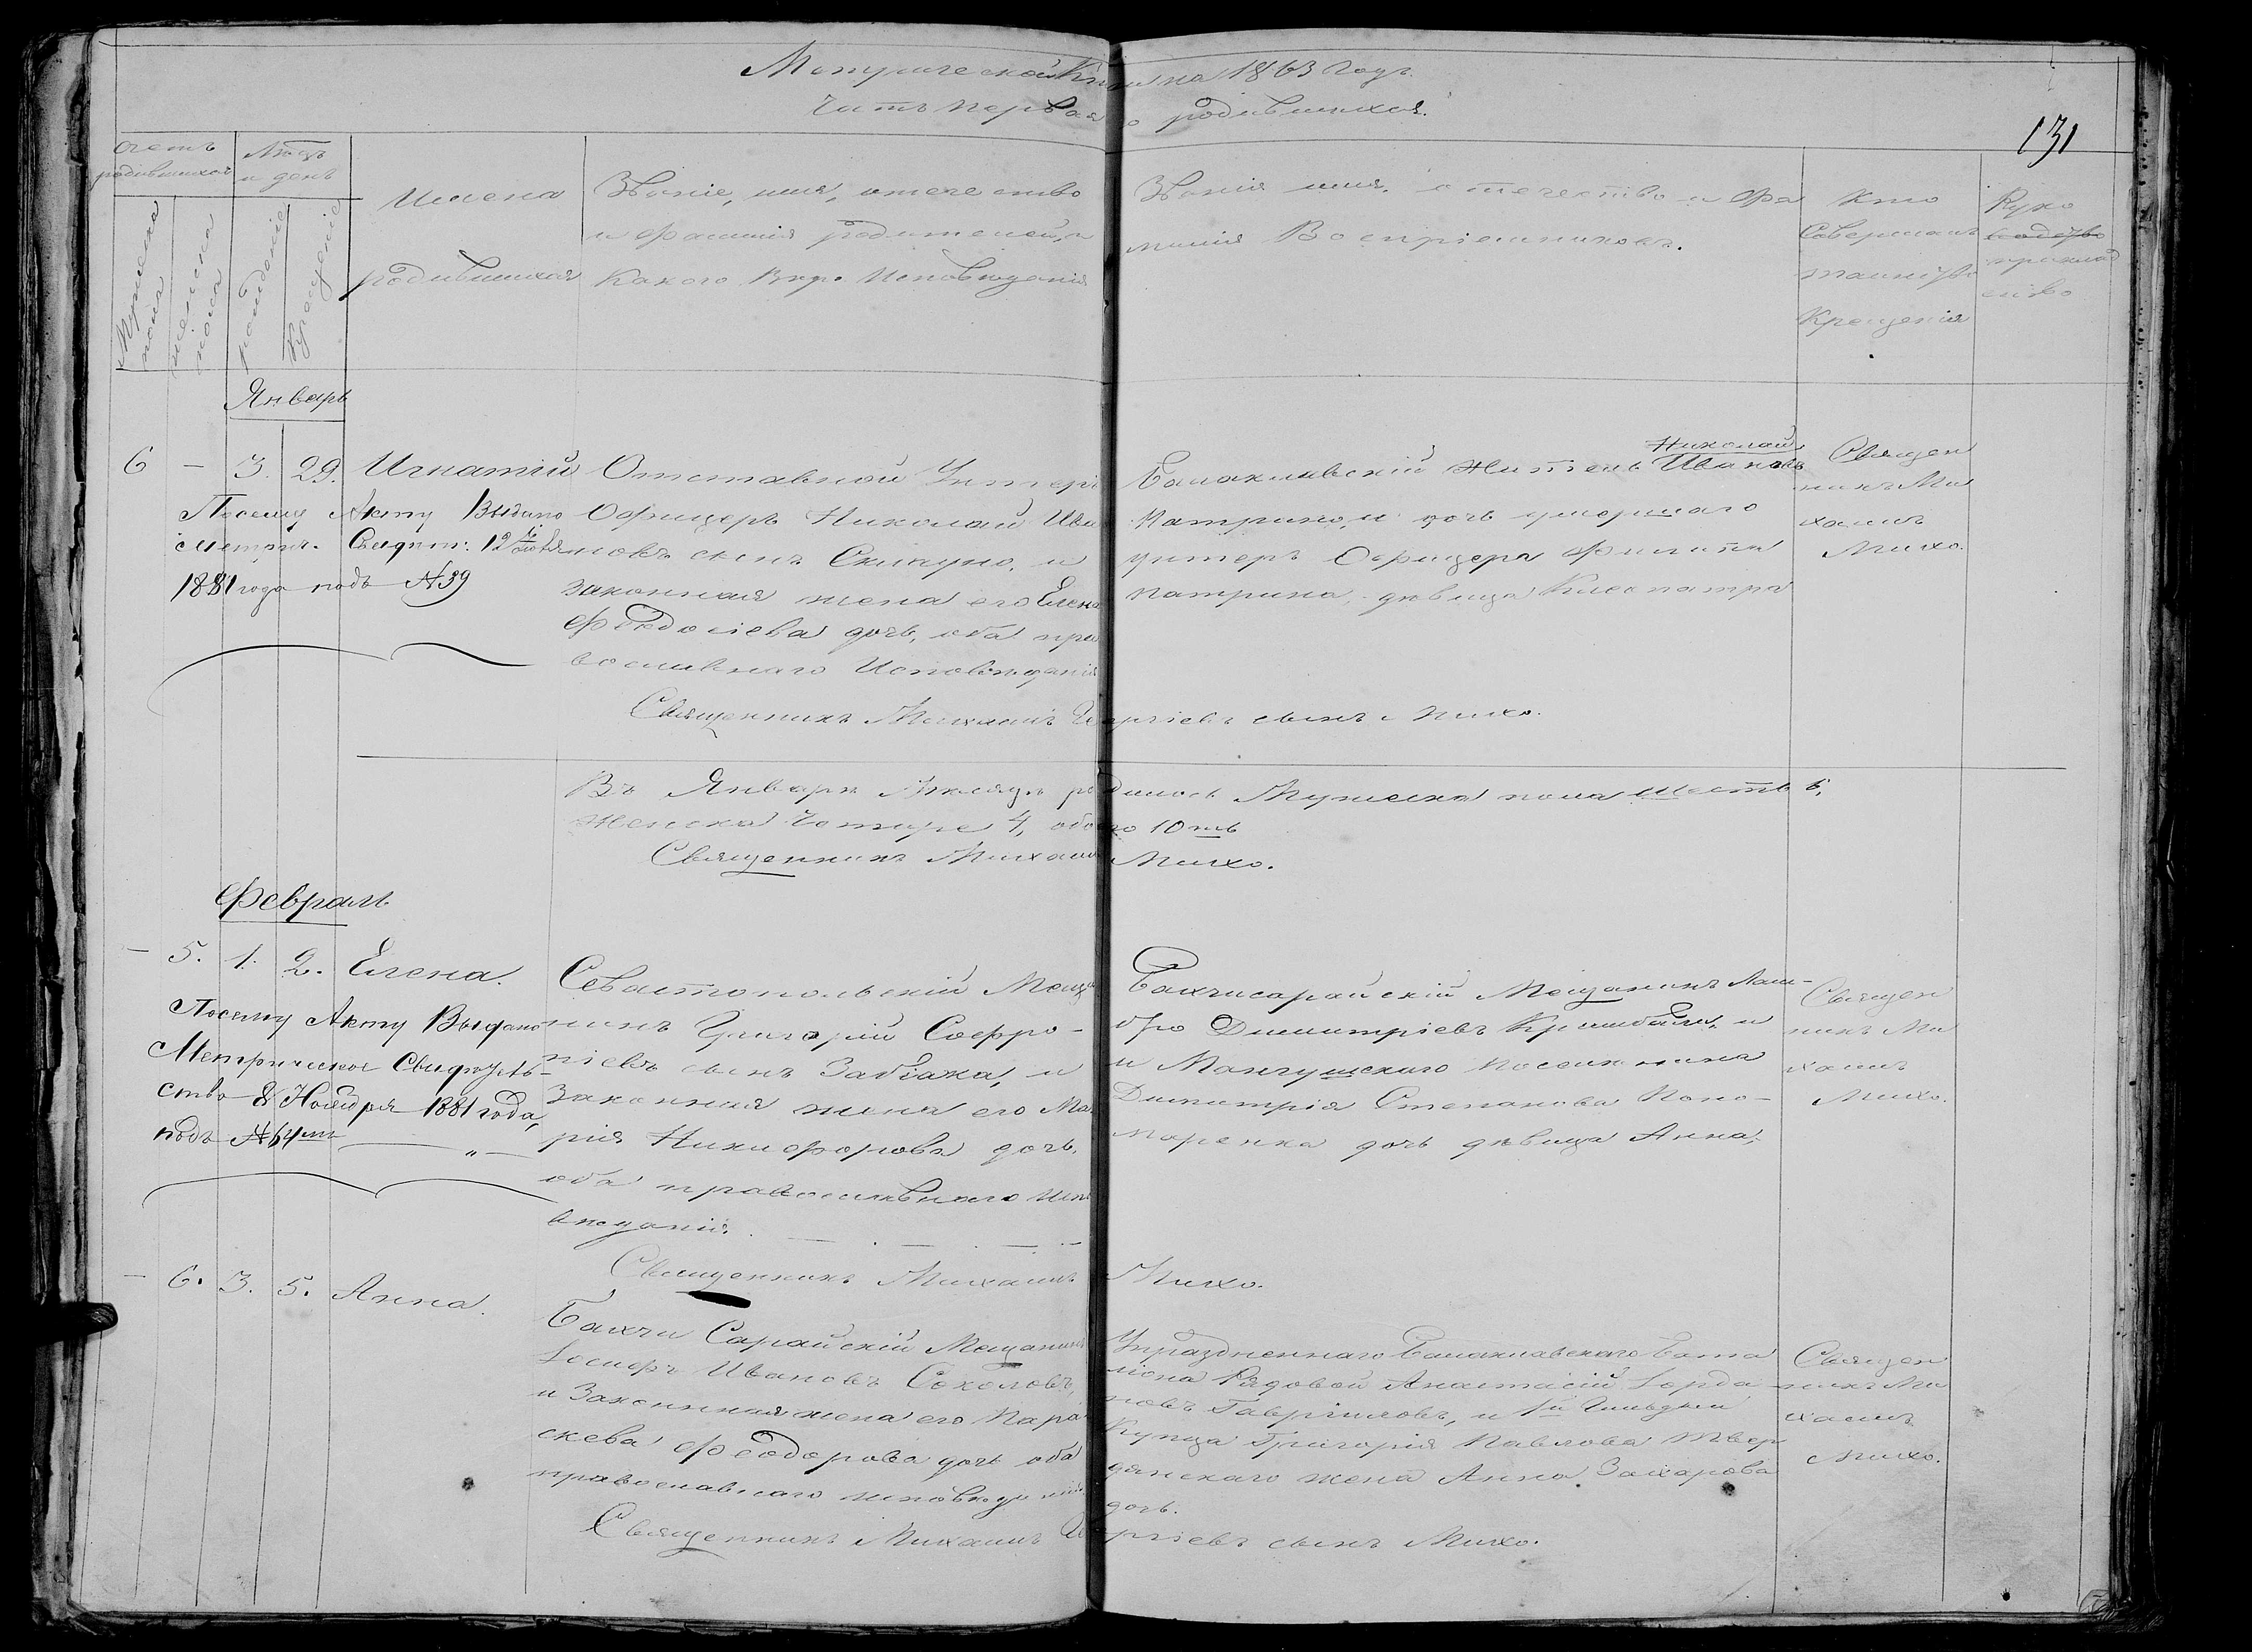 Метрической Книги на 1863 Годъ.
Часть первая о родившихся.
131
Счетъ родившихся
Мужеска пола
женска пола
Мѣсяцъ и день
рожденіе
Крещеніе
Имена
родившихся
Званіе, имя, отечество
и фамилія родителей, и
какого Вѣро Исповѣданія
Званія имя, отечество и фа
милія Воспріемниковъ.
Кто
Совершалъ
таинство
Крещенія
Руко
приклад
ство
Январь
6 – 3. 29. Игнатій
По сему Акту Выдано
метрич. Свидѣт. 12
1881 года подъ №39
Отставной Унтеръ
Офицеръ Николай Ива
новъ сынъ и
законная жена его Елена
Феодосіева дочь, оба пра
вославнаго Исповѣданія
Николай
Балаклавскій житель Ивановъ
Патрино, и дочь умершаго
унтеръ Офицера Филипа
Патрина, дѣвица Клеопатра
Священ
никъ Ми
хаилъ
Михо.
Священникъ Михаилъ Георгіевъ сынъ Михо.
Въ Январѣ Мѣсяцѣ родилось Мужеска пола шесть 6,
Женска Четыре 4, обоего 10ть
Священникъ Михаилъ Михо.
Февраль
– 5. 1. 2. Елена.
По сему Акту Выдано
Метрическое Свидѣтель-
ство 8 Ноября 1881 года,
подъ №64мъ
Севастопольскій Меща
нинъ Григорій Софро-
ніевъ сынъ Забіака, и
Законная жена его Ма
рія Никифорова дочь,
оба православнаго испо
вѣданія.
Бахчисарайскій Мещанинъ Лам-
бро Димитріевъ и
и Мангушскаго поселянина
Димитрія Степанова Поно-
маренка дочь дѣвица Анна,
Священ
никъ Ми
хаилъ
Михо.
Священникъ Михаилъ Михо.
– 6. 3. 5. Анна.
Бахчи Сарайскій Мещанинъ
Іосифъ Ивановъ Соколовъ,
и Законная жена его Пара
скева Феодорова дочь оба
православнаго исповѣданія.
Упраздненнаго Балаклавскаго Бата
ліона Рядовой Анастасій Іорда
новъ Гавриловъ, и 1й Гильдіи
Купца Григорія Павлова Твер
дянскаго жена Анна Захарова
дочь.
Священ
никъ Ми
хаилъ
Михо.
Священникъ Михаилъ Георгіевъ сынъ Михо.